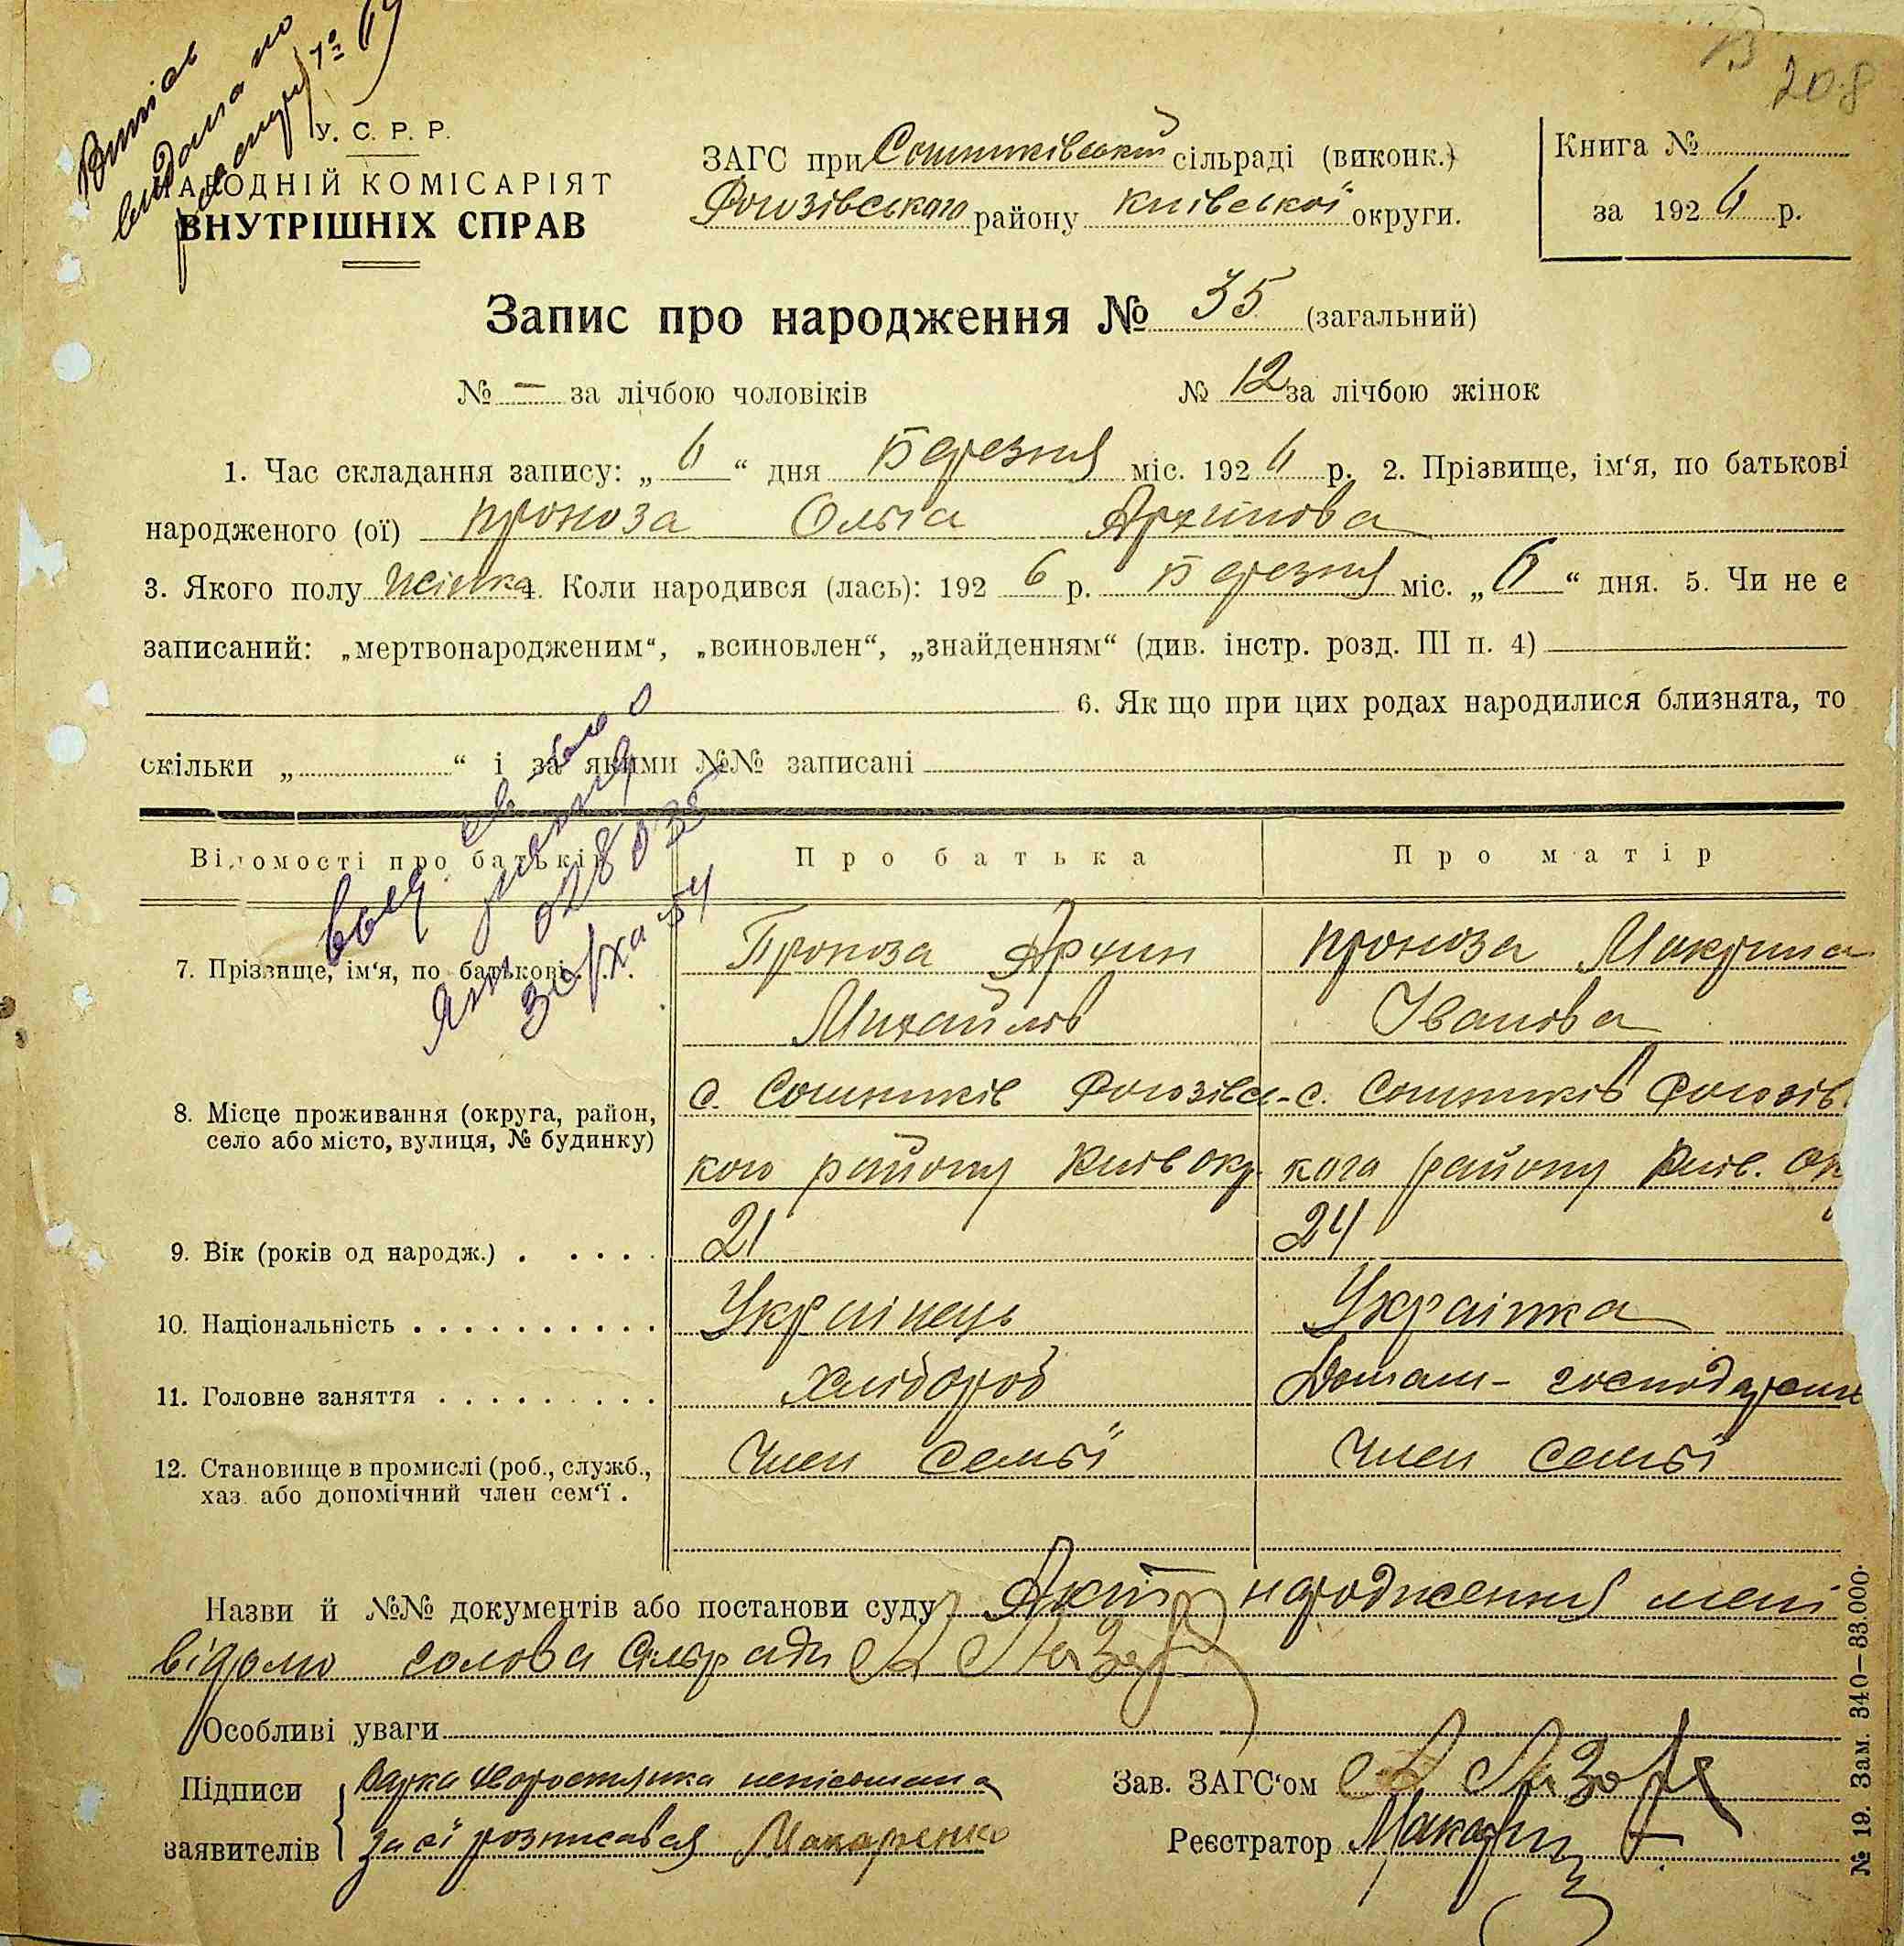 208
У. С. Р. Р.
НАРОДНІЙ КОМІСАРІЯТ
ВНУТРІШНІХ СПРАВ
ЗАГС при Сошниківській сільраді (виконк.)
району Київської округи.
Книга №
за 1926 р.
Запис про народження № 35 (загальний)
№ — за лічбою чоловіків № 12 за лічбою жінок
1. Час складання запису: „ 6 “ дня Березня міс. 1926 р. 2. Прізвище, ім‘я, по батькові
народженого (ої) Проноза Ольга Архипова
3. Якого полу Жінка 4. Коли народився (лась): 192 6 р. Березня міс. „ 6 “ дня. 5. Чи не є
записаний: „мертвонародженим“, „всиновлен“, „знайденням“ (див. інстр. розд. III п. 4)
6. Як що при цих родах народилися близнята, то
скільки „ “ і за якими №№ записані
Відомості про батьків Про батька Про матір
7. Прізвище, ім‘я, по батькові Проноза Архип Проноза Макрина
Михайлов Іванова
8. Місце проживання (округа, район, с. Сошників с. Сошників
село або місто, вулиця, № будинку) кого району Київ окр. кого району Київ. Ок
9. Вік (років од народж.) . . . . . 21 24
10. Національність . . . . . . . . . . Українець Українка
11. Головне заняття . . . . . . . . . Хлібороб Домаш- господарст
12. Становище в промислі (роб., служб., Член семьї Член семьї
хаз. або допомічний член сем‘ї .
Назви й №№ документів або постанови суду Акт народження мені
відомо голова Сільради
Особливі уваги
Підписи неписьмена
Зав. ЗАГС‘ом
заявителів за єї розписався Макаренко
Реєстратор
№ 19. Зам. 340—83.000.